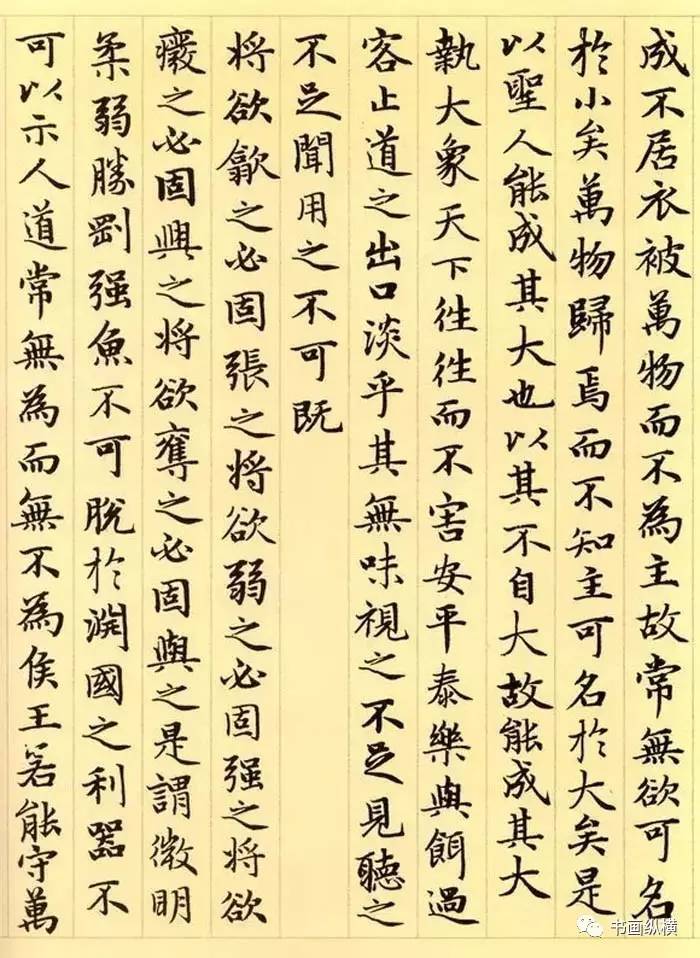 成不居衣被萬物而不為主故常無欲可名
於小矣萬物歸焉而不知主可名於大矣是
以聖人能成其大也以其不自大故能成其大
執大象天下往往而不害安平泰樂與餌過
客止道之出口淡乎其無味視之不足見聽之
不足聞用之不可既
將欲歙之必固張之將欲弱之必固强之將欲
癈之必固興之將欲奪之必固與之是謂微明
柔弱勝剛强魚不可脫於淵國之利器不
可以示人道常無為而無不為侯王若能守萬
书画纵横